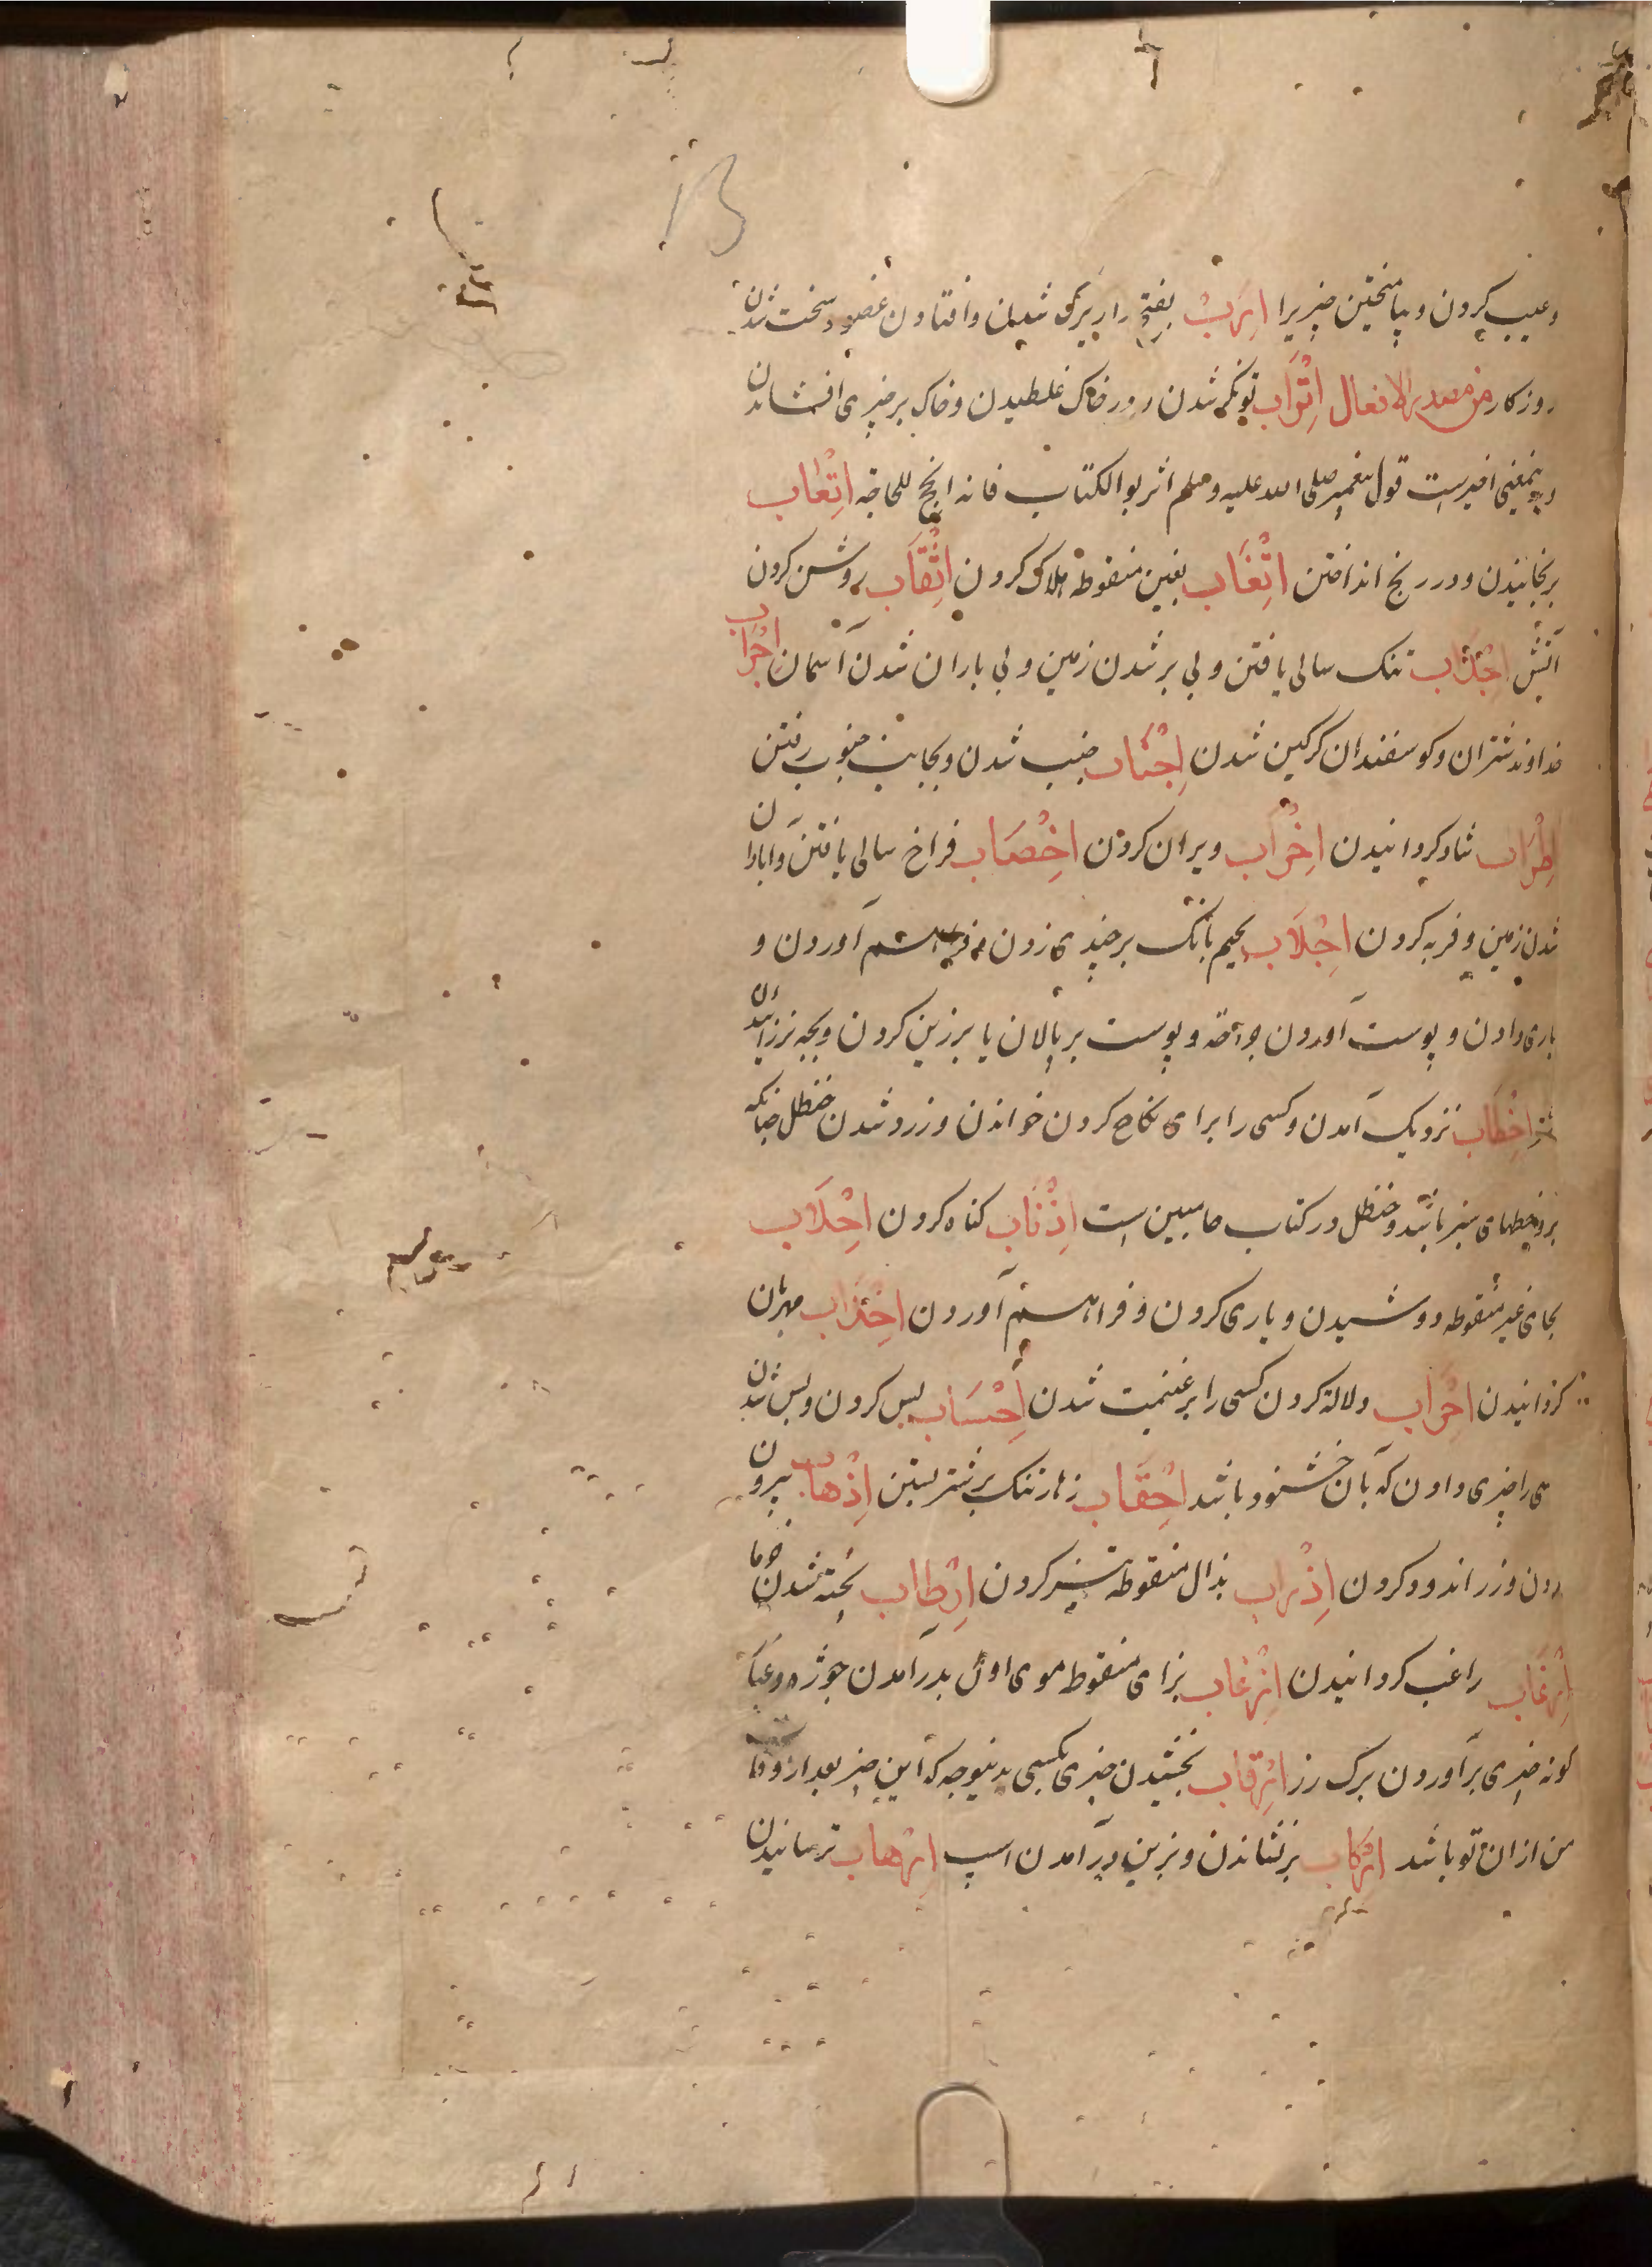 وعیب کردن و پیامیختن چیزیرا اِرَبُ بفتح را زیرک شدن وافتادن عضو و سخت شدن
روزکار من مصدر الافعال اِتْرَاب تونکر شدن و در خاک غلطیدن و خاک بر چیزی افشاندن
و بدینمعنی اخیرست قول پیغمبر صلی الله علیه وسلم اتربوا الکتاب فانه انجح للحاجة اِتْعَاب
برنجانیدن و در رنج انداختن اِتْغَاب بغین منقوطه هلاک کردن اِثْقَاب روشن کردن
آتش اِجْدَاب تنک سالی یافتن و بی بر شدن زمین و بی باران شدن آسمان اِجْرَاب
خداوند شتران و کوسفندان کرکین شدن اِجْنَاب جنب شدن و بجانب جنوب رفتن
اِطْرَاب شاد کردانیدن اِخْرَاب ویران کردن اِخْصَاب فراخ سالی یافتن و آبادان
شدن زمین و فربه کردن اِجْلَاب بجیم بانک بر چیزی زدن و فراهم آوردن و
یاری دادن و پوست آوردن جراحة و پوست بر پالان یا بر زین کردن و بچه نر زاییدن
شتر اِخْطَاب نزدیک آمدن و کسی را برای نکاح کردن خواندن و زرد شدن حنظل چنانکه
برو خطهای سبز باشد و حنظل در کتاب حا مبین است اِذْنَاب کناه کردن اِحْلَاب
بحای غیر منقوطه دوشیدن و یاری کردن و فراهم آوردن اِحْدَاب مهربان
کردانیدن اِحْرَاب دلالة کردن کسی را بر غنیمت شدن اِحْسَاب بس کردن و بس شدن
کسی را چیزی دادن که بآن خشنود باشد اِحْقَاب زهار تنک بر شتر بستن اِذْهَاب بیرون
بردن و زر اندود کردن اِذْرَاب بذال منقوطه تیز کردن اِرْطَاب پخته شدن خرما
اِرْغَاب راغب کردانیدن اِزْغَاب بزای منقوطه موی اول بدر آمدن جوژه را
کونه چیزی برآوردن برک رز اِرْقَاب بخشیدن چیزی بکسی بدینوجه که این چیز بعد از وفات
من از ان تو باشد اِرْکَاب برنشاندن و بزین درآمدن اسپ اِرْهَاب ترسانیدن